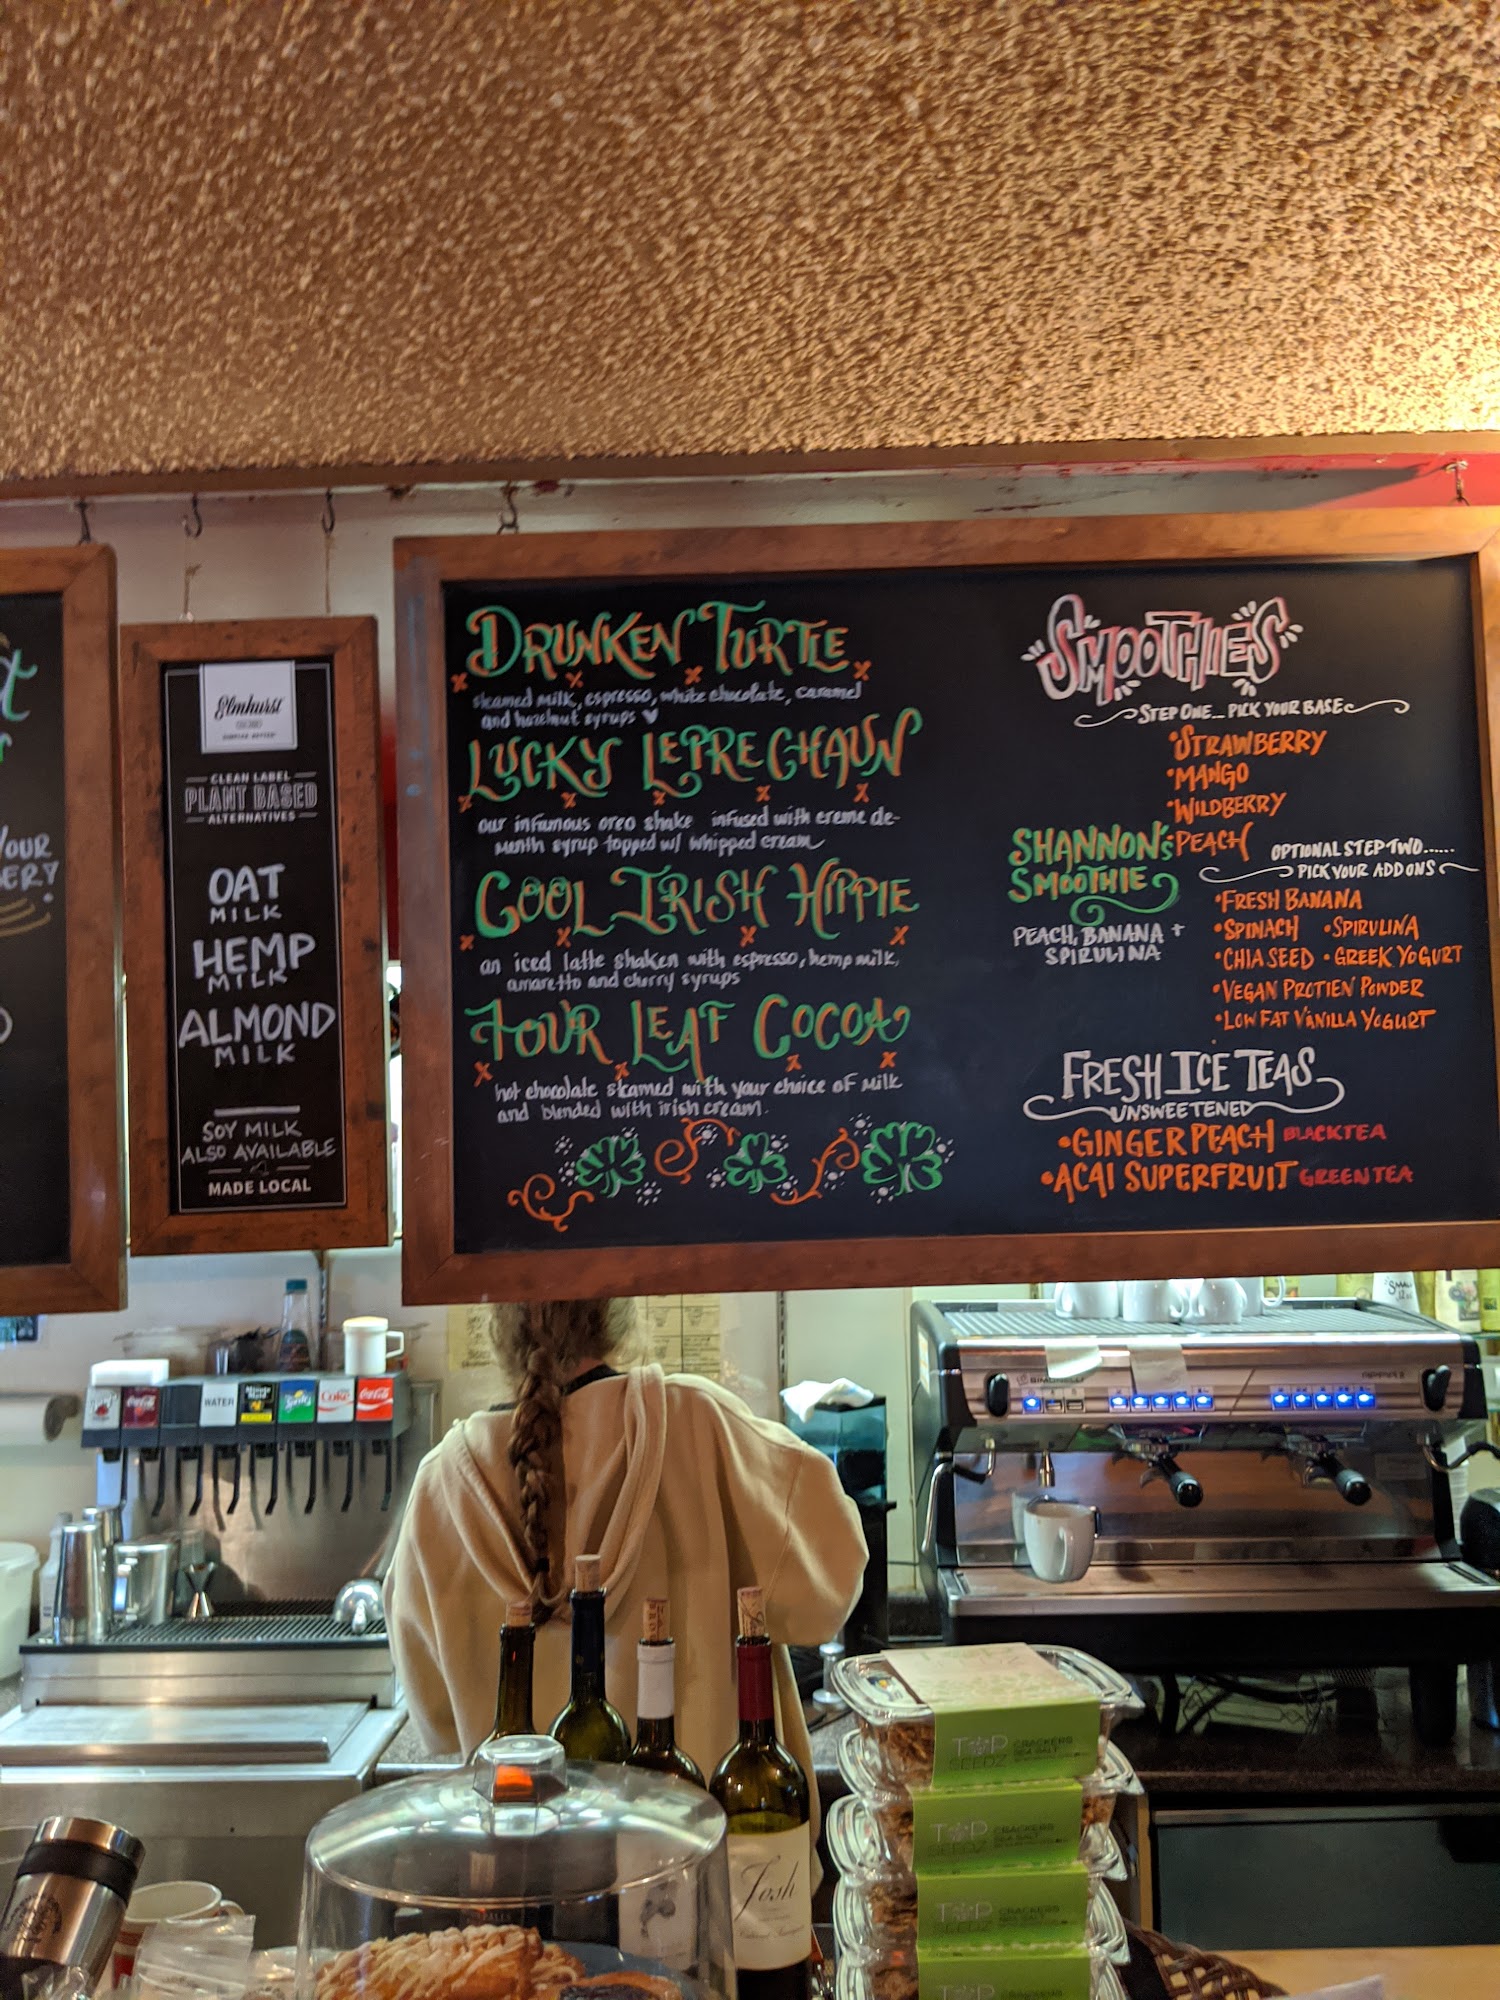 Elmhurst
CLEAN LABEL
PLANT BASED
ALTERNATIVES
OAT
MILK
HEMP
MILK
ALMOND
MILK
SOY MILK
ALSO AVAILABLE
MADE LOCAL
DRUNKEN TURTLE
steamed milk, espresso, white chocolate, caramel
and hazelnut syrups
LUCKY LEPRECHAUN
our infamous oreo shake infused with creme de-
menth syrup topped w/ whipped cream
COOL IRISH HIPPIE
an iced latte shaken with espresso, hemp milk,
amaretto and cherry syrups
FOUR LEAF COCOA
hot chocolate steamed with your choice of milk
and blended with irish cream.
SMOOTHIES
STEP ONE... PICK YOUR BASE
•STRAWBERRY
•MANGO
•WILDBERRY
•PEACH
SHANNON's
SMOOTHIE
PEACH, BANANA +
SPIRULINA
OPTIONAL STEP TWO......
PICK YOUR ADD ONS
•FRESH BANANA
•SPINACH •SPIRULINA
•CHIA SEED •GREEK YOGURT
•VEGAN PROTIEN POWDER
•LOW FAT VANILLA YOGURT
FRESH ICE TEAS
UNSWEETENED
•GINGER PEACH BLACK TEA
•ACAI SUPERFRUIT GREEN TEA
YOUR
WATER
Coke
Coca-Cola
SIMONELLI
APPIA
TOP
SEEDZ
CRACKERS
SEA SALT
TOP
SEEDZ
CRACKERS
SEA SALT
TOP
SEEDZ
CRACKERS
SEA SALT
TOP
SEEDZ
CRACKERS
Josh